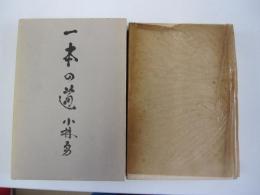 一本の道
小林勇